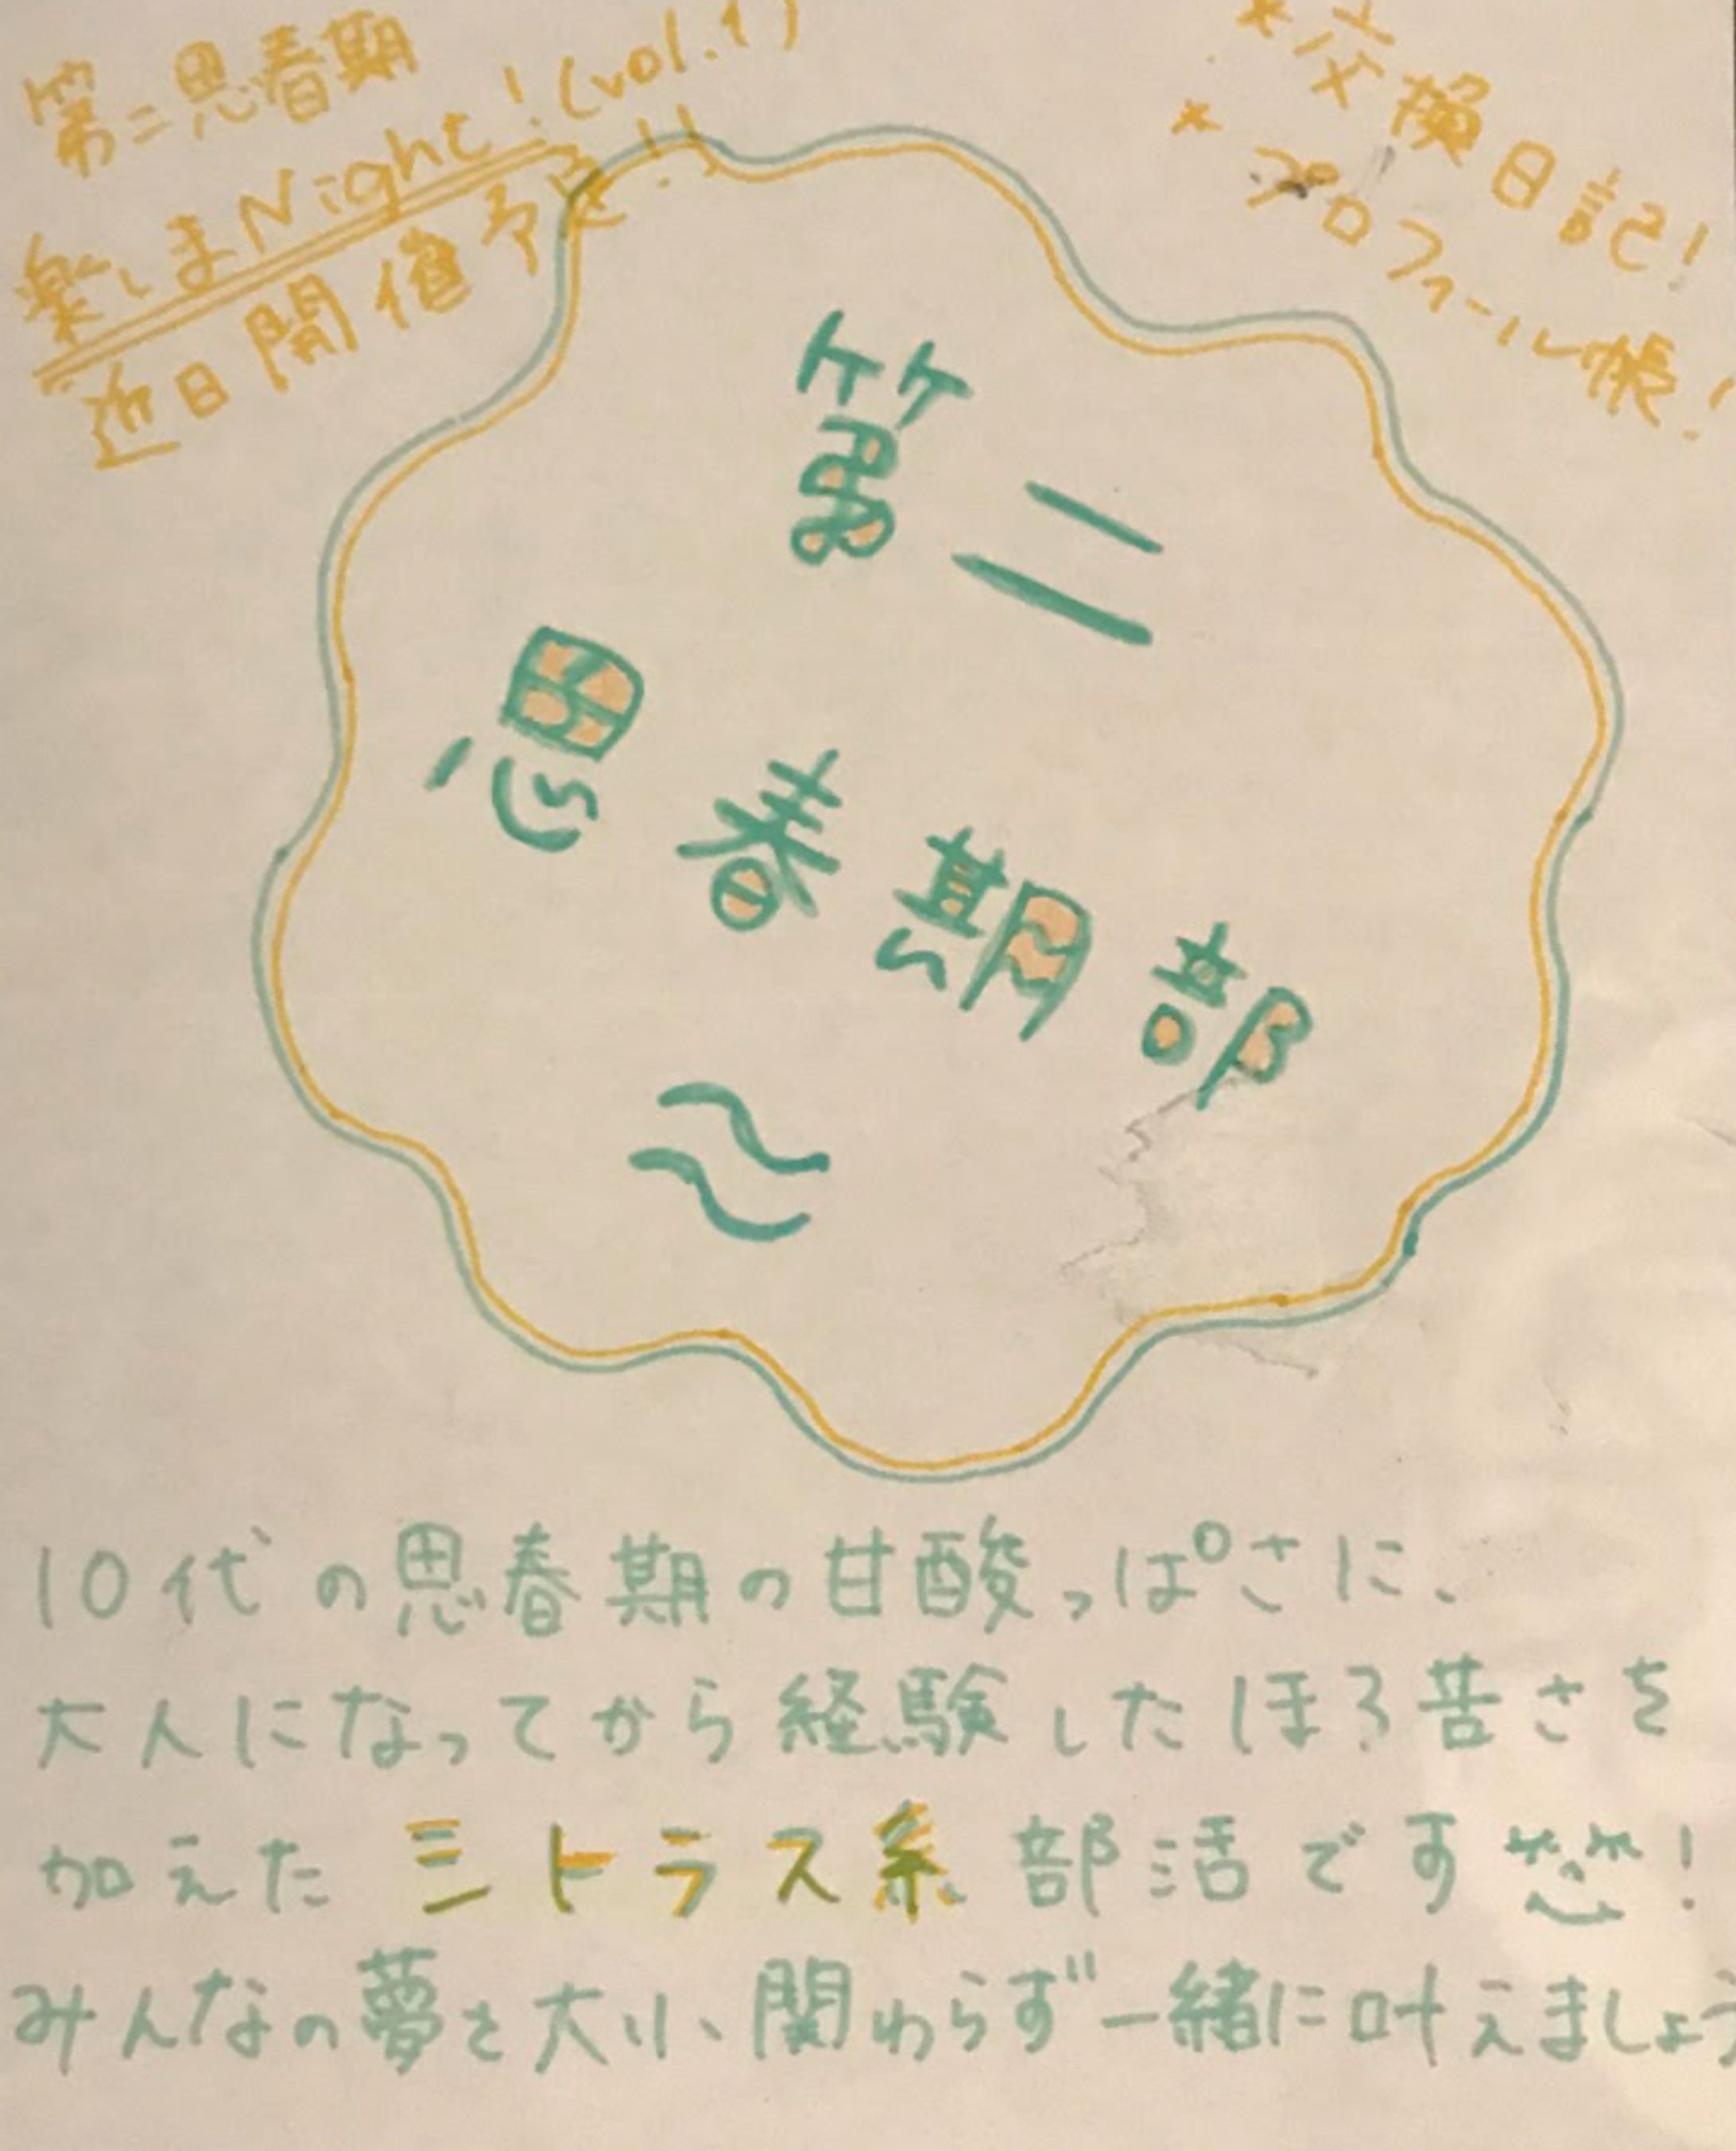 第二思春期
楽しまNight!(vol.1)
近日開催予定!!
*交換日記!
*プロフィール帳!
第二
思春期部
10代の思春期の甘酸っぱさに、
大人になってから経験したほろ苦さを
加えたミトラス系部活です!
みんなの夢を大小関わらず一緒に叶えましょう